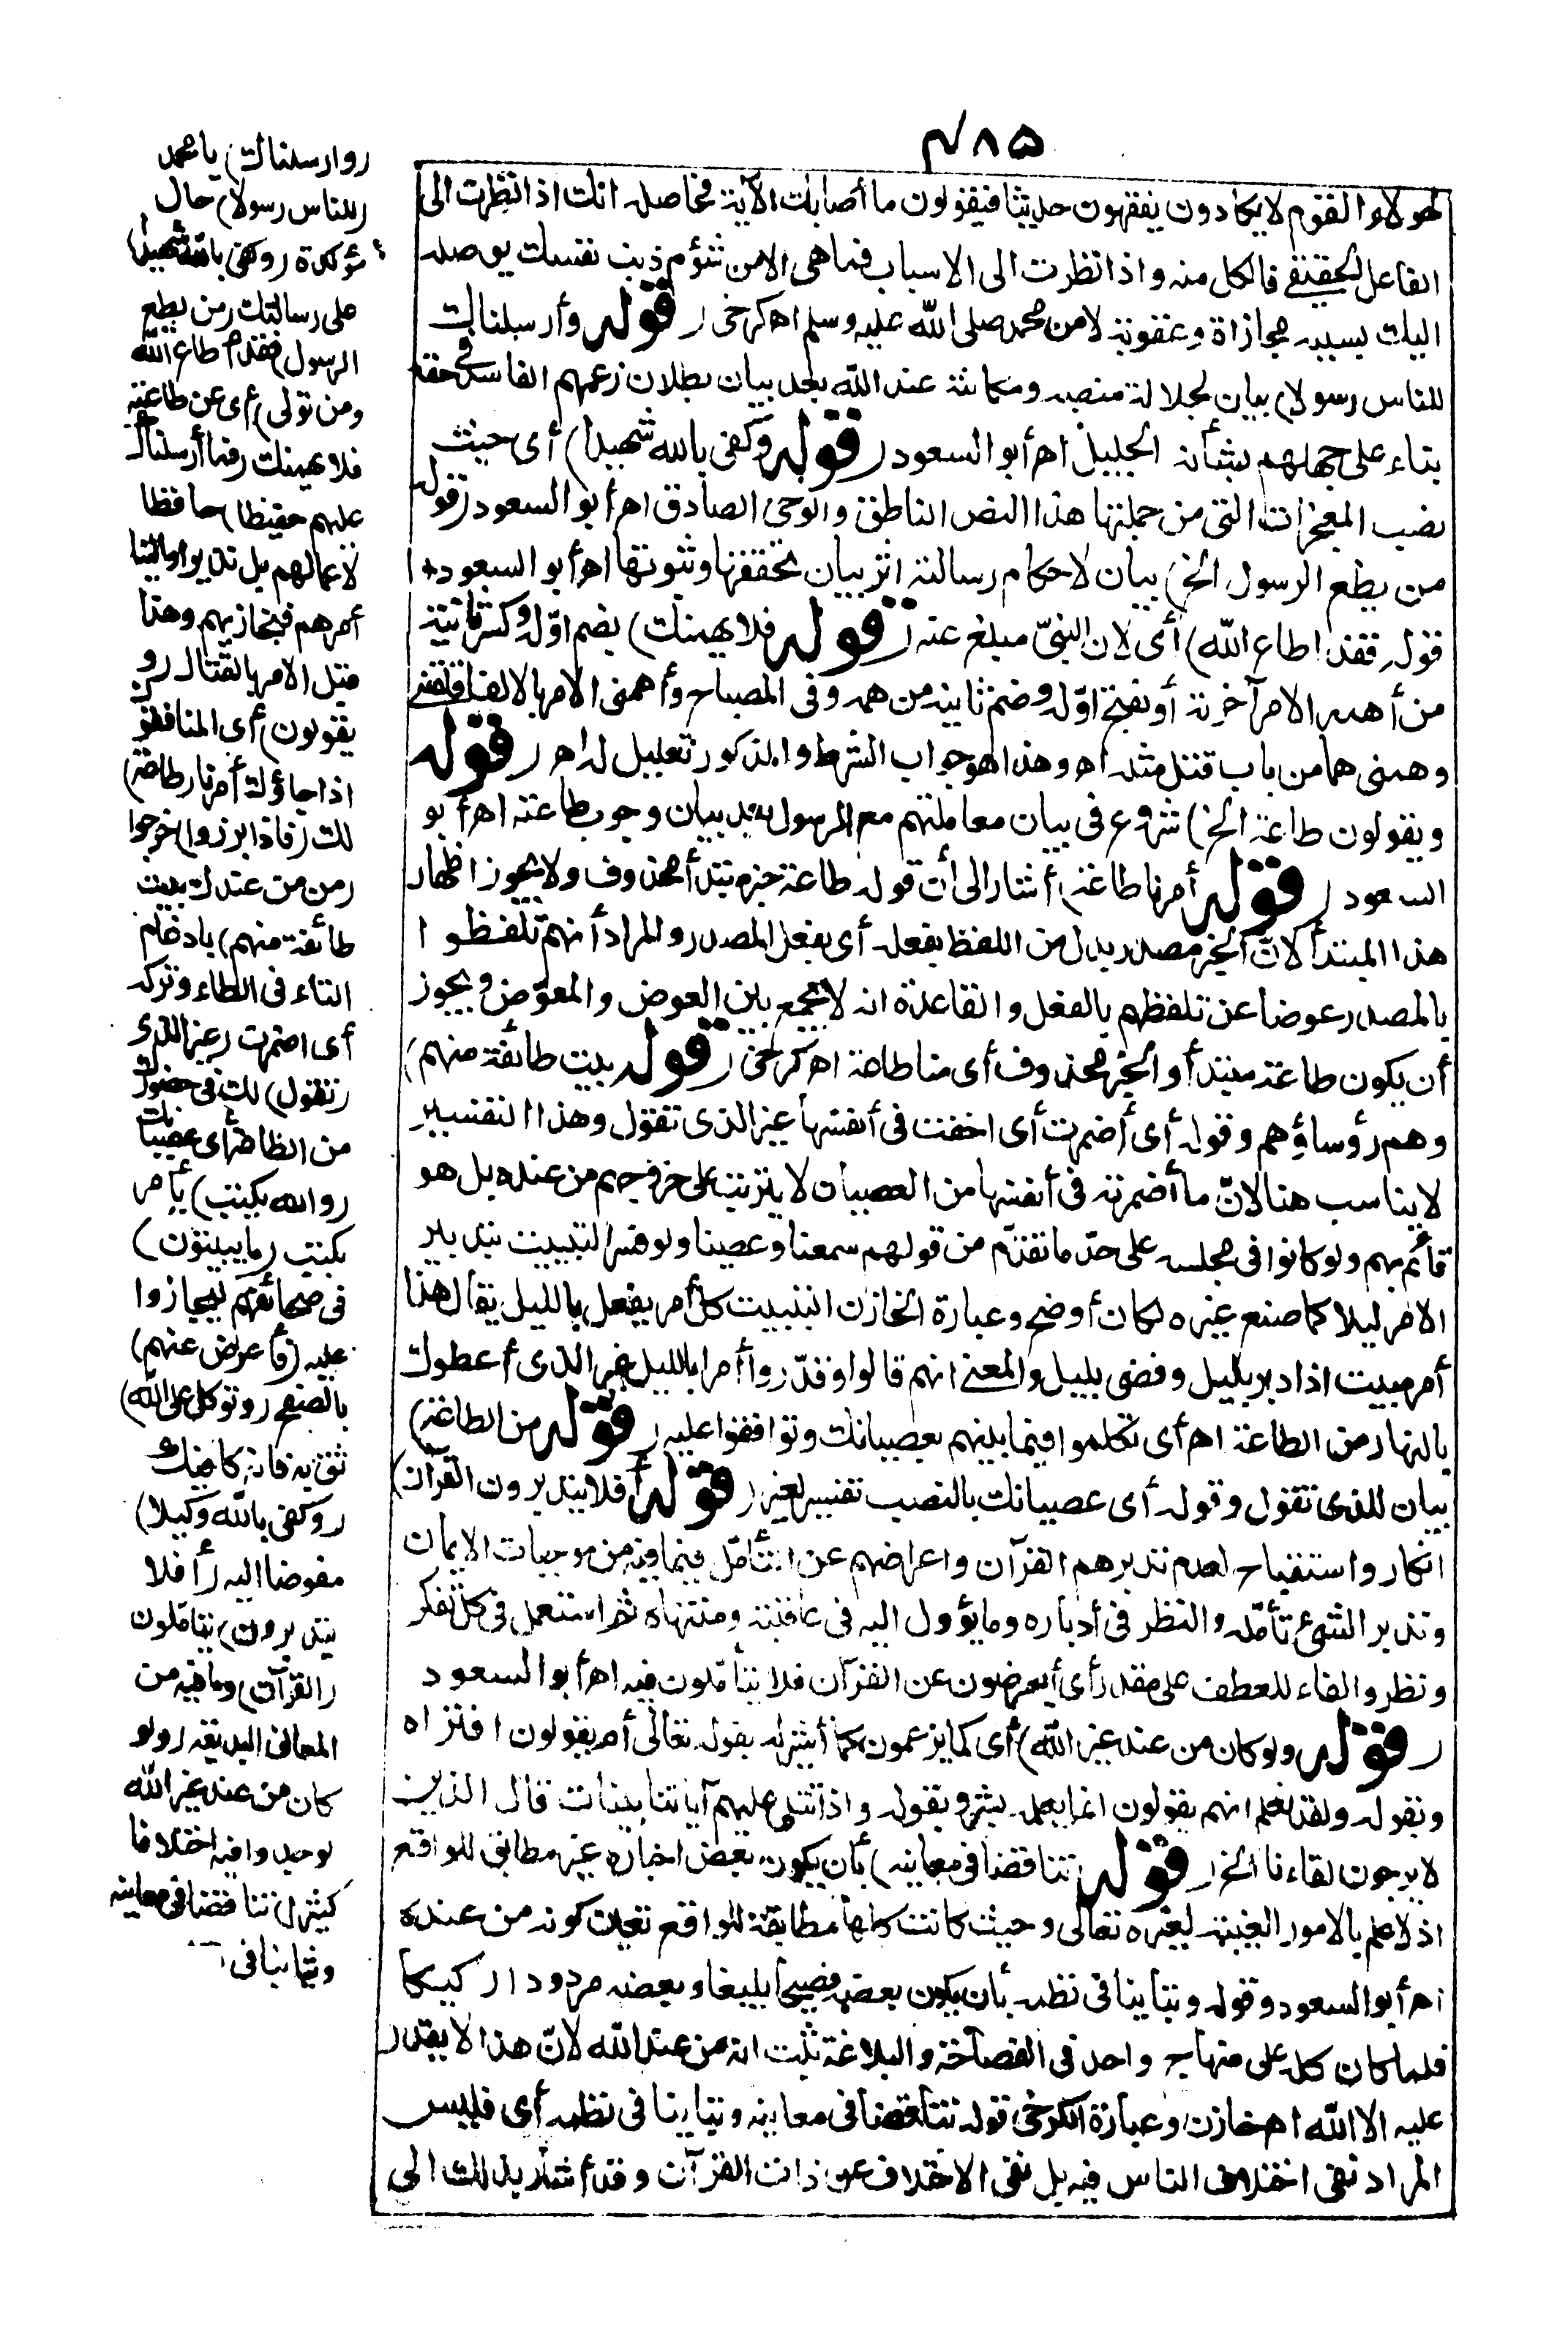 ٤٨٥
لهؤلاء القوم لا يكادون يفقهون حديثا فيقولون ما أصابك الآية فحاصله انك اذا نظرت الى
الفاعل الحقيقي فالكل منه واذا نظرت الى الاسباب فما هى الا من شؤم ذنب نفسك يوصله
اليك بسببه مجازاة وعقوبة لا من محمد صلى الله عليه وسلم اه كرخى (قوله وأرسلناك
للناس رسولا) بيان لجلالة منصبه ومكانته عند الله بعد بيان بطلان زعمهم الفاسد فى حقه
بناء على جهلهم بشأنه الجليل اه أبو السعود (قوله وكفى بالله شهيدا) أى حيث
نصب المعجزات التى من جملتها هذا النص الناطق والوحى الصادق اه أبو السعود (قوله
من يطع الرسول الخ) بيان لاحكام رسالته اثر بيان تحققها وثبوتها اه أبو السعود
قوله فقد اطاع الله) أى لان النبىّ مبلغ عنه (قوله فلا يهمنك) بضم اوّله وكسر ثانيه
من أهمه الامر أحزنه أو بفتح اوّله وضم ثانيه من همه وفى المصباح وأهمنى الامر بالالف اقلقنى
وهمنى هما من باب قتل مثله اه وهذا هو جواب الشرط والمذكور تعليل له اه (قوله
ويقولون طاعة الخ) شروع فى بيان معاملتهم مع الرسول بعد بيان وجوب طاعته اه أبو
السعود (قوله أمرنا طاعة) أشار الى أن قوله طاعة خبر مبتدأ محذوف ولا يجوز اظهار
هذا المبتدأ لانّ الخبر مصدر بدل من اللفظ بفعله أى بفعل المصدر والمراد أنهم تلفظوا
بالمصدر عوضا عن تلفظهم بالفعل والقاعدة انه لا يجمع بين العوض والمعوّض ويجوز
أن يكون طاعة مبتدأ والخبر محذوف أى منا طاعة اه كرخى (قوله بيت طائفة منهم)
وهم رؤساؤهم وقوله أى أضمرت أى اخفت فى أنفسها غير الذى تقول وهذا التفسير
لا يناسب هنا لانّ ما أضمرته فى أنفسها من العصيان لا يترتب على خروجهم من عنده بل هو
قائم بهم ولو كانوا فى مجلسه على حدّ ما تقدّم من قولهم سمعنا وعصينا ولو فسر التبييت بتدبير
الامر ليلا كما صنع غيره لكان أوضح وعبارة الخازن التبييت كل أمر يفعل بالليل يقال هذا
أمر مبيت اذا دبر بليل وقضى بليل والمعنى انهم قالوا وقدّروا أمرا بالليل غير الذى أعطوك
بالنهار من الطاعة اه أى تكلموا فيما بينهم بعصيانك وتوافقوا عليه (قوله من الطاعة)
بيان للذى تقول وقوله أى عصيانك بالنصب تفسير لغير (قوله أفلا يتدبرون القرآن)
انكار واستقباح لعدم تدبرهم القرآن واعراضهم عن التأمّل فيما فيه من موجبات الايمان
وتدبر الشئ تأمّله والنظر فى أدباره وما يؤول اليه فى عاقبته ومنتهاه ثم استعمل فى كل تفكر
ونظر والفاء للعطف على مقدر أى أيعرضون عن القرآن فلا يتأمّلون فيه اه أبو السعود
(قوله ولو كان من عند غير الله) أى كما يزعمون كما أشير له بقوله تعالى أم يقولون افتراه
وبقوله ولقد نعلم انهم يقولون انما يعلمه بشر وبقوله واذا تتلى عليهم آياتنا بينات قال الذين
لا يرجون لقاءنا الخ (قوله تناقضا فى معانيه) بأن يكون بعض اخباره غير مطابق للواقع
اذ لا علم بالامور الغيبية لغيره تعالى وحيث كانت كلها مطابقة للواقع تعين كونه من عنده
اه أبو السعود وقوله وتباينا فى نظمه بأن يكون بعضه فصيحا بليغا وبعضه مردودا ركيكا
فلما كان كله على منهاج واحد فى الفصاحة والبلاغة ثبت انه من عند الله لانّ هذا لا يقدر
عليه الا الله اه خازن وعبارة الكرخى قوله تناقضا فى معانيه وتباينا فى نظمه أى فليس
المراد نفى اختلاف الناس فيه بل نفى الاختلاف عن ذات القرآن وقد أشار بذلك الى
(وارسلناك) يا محمد
(للناس رسولا) حال
مؤكدة (وكفى بالله شهيدا)
على رسالتك (من يطع
الرسول فقد اطاع الله
ومن تولى) أى عن طاعته
فلا يهمنك (فما أرسلناك
عليهم حفيظا) حافظا
لاعمالهم بل نذيرا والينا
أمرهم فنجازيهم وهذا
قبل الامر بالقتال (و
يقولون) أى المنافقون
اذا جاؤك أمرنا (طاعة)
لك (فاذا برزوا) خرجوا
(من عندك بيت
طائفة منهم) بادغام
التاء فى الطاء وتركه
أى اضمرت (غير الذى
تقول) لك فى حضورك
من الطاعة أى عصيانك
(والله يكتب) يأمر
بكتب (ما يبيتون)
فى صحائفهم ليجازوا
عليه (فأعرض عنهم)
بالصفح (وتوكل على الله)
ثق به فانه كافيك
(وكفى بالله وكيلا)
مفوضا اليه (أفلا
يتدبرون) يتأمّلون
(القرآن) وما فيه من
المعانى البديعة (ولو
كان من عند غير الله
لوجدوا فيه اختلافا
كثيرا) تناقضا فى معانيه
وتباينا فى